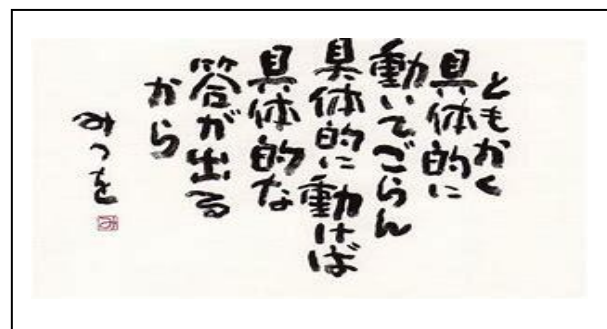 ともかく
具体的に
動いてごらん
具体的に動けば
具体的な
答が出る
から
みつを